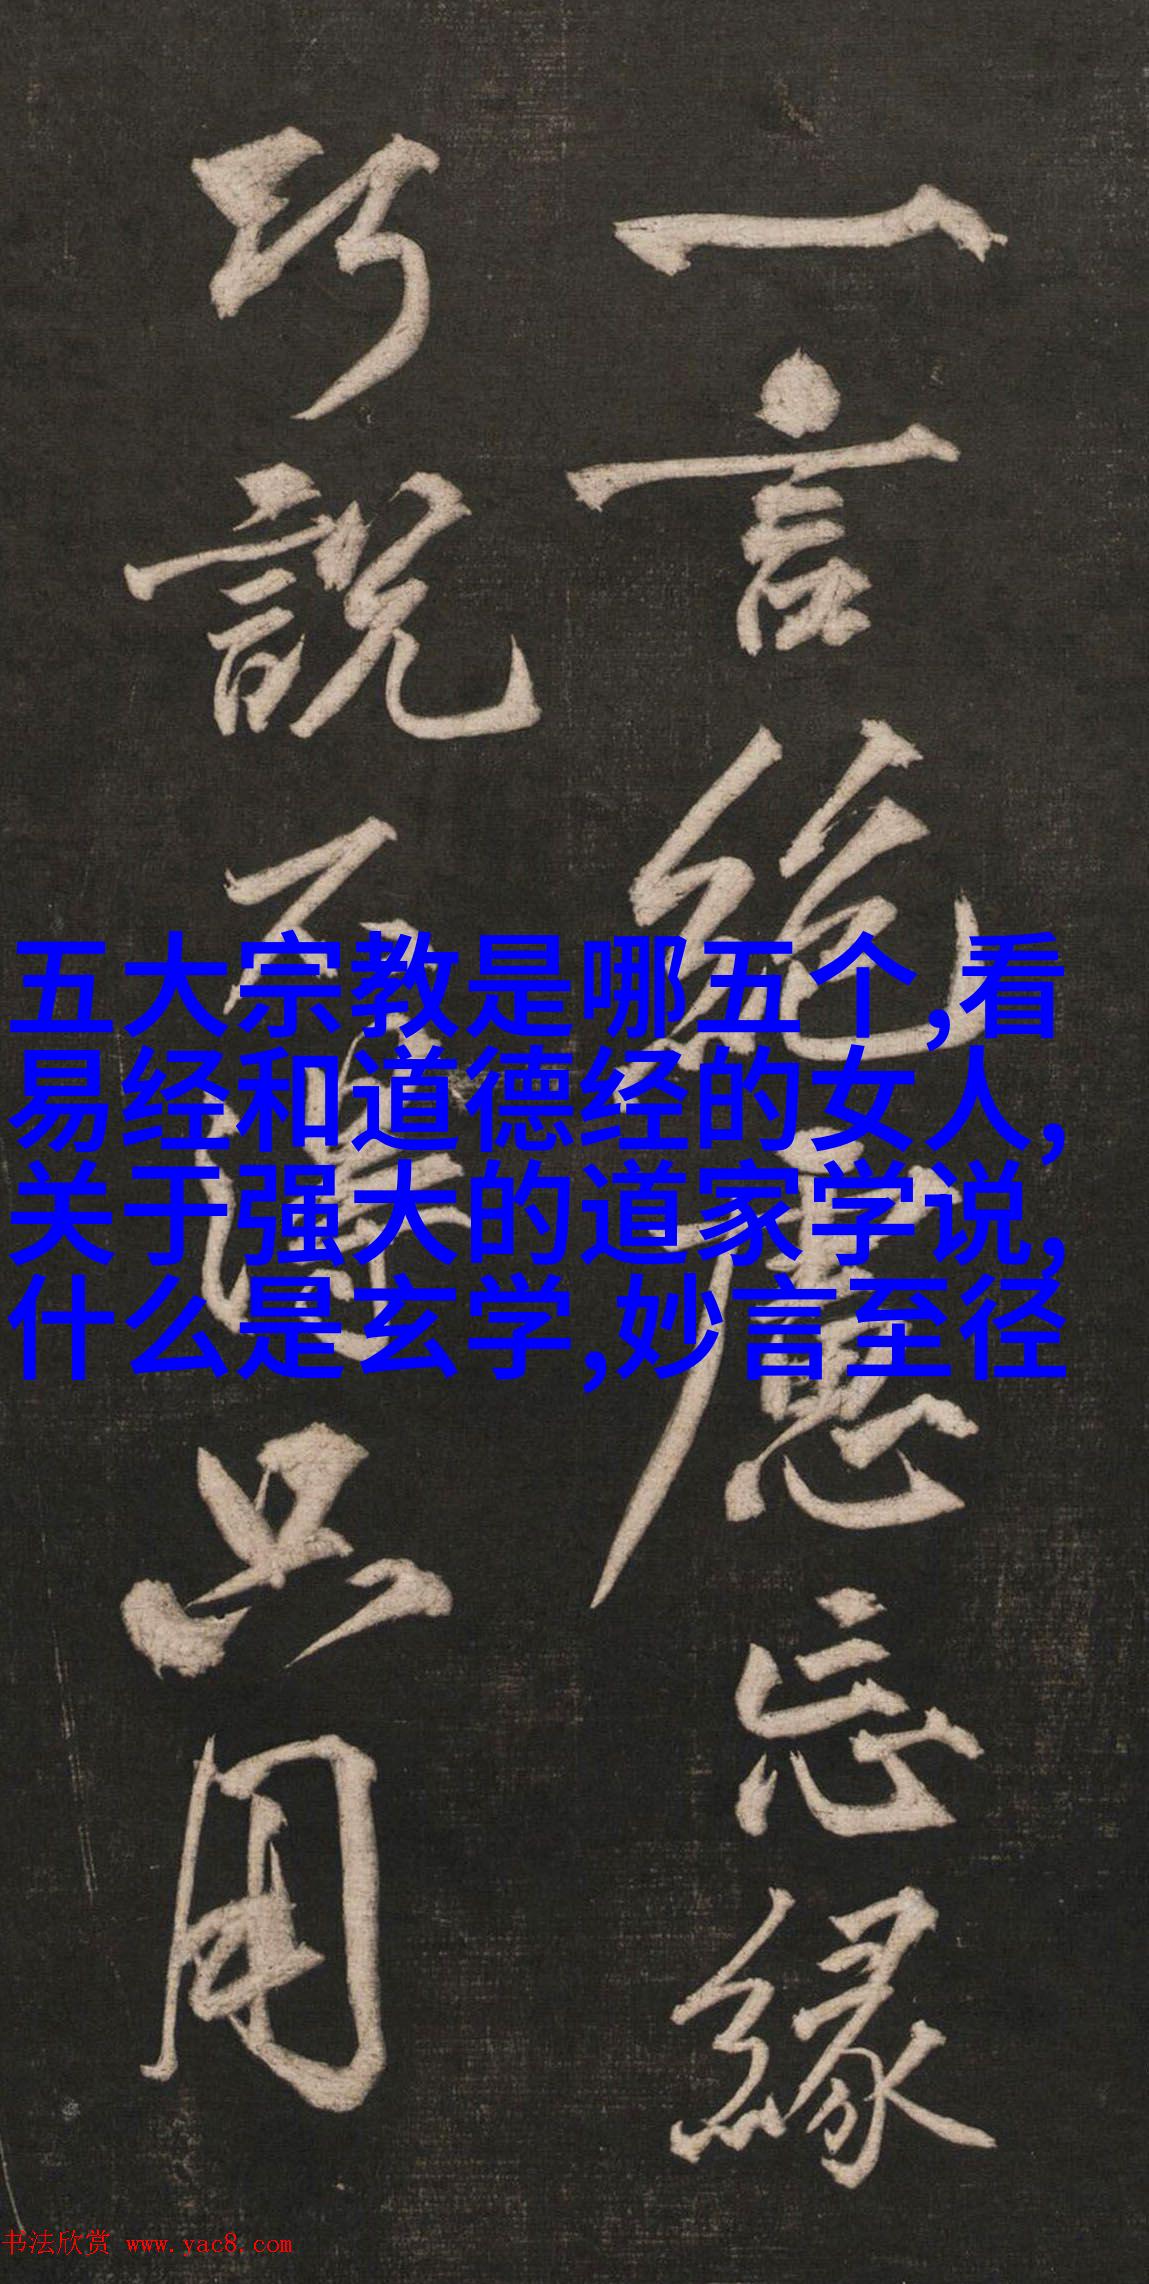 一言絶慮忘緣
巧說不只用
五大宗教是哪五个,看
易经和道德经的女人,
关于强大的道家学说,
什么是玄学,妙言至径
书法欣赏 www.yac8.com